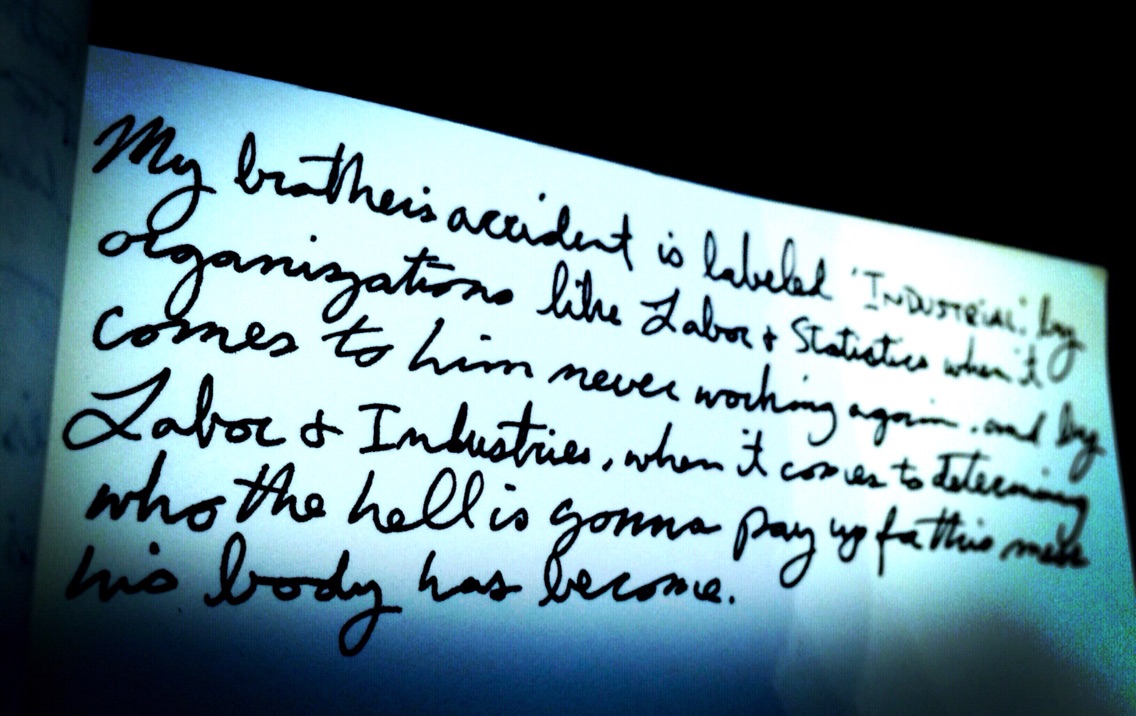 My brother's accident is labeled 'INDUSTRIAL' by
organizations like Labor & Statistics when it
comes to him never working again, and by
Labor & Industries, when it comes to determining
who the hell is gonna pay up for this mess
his body has become.